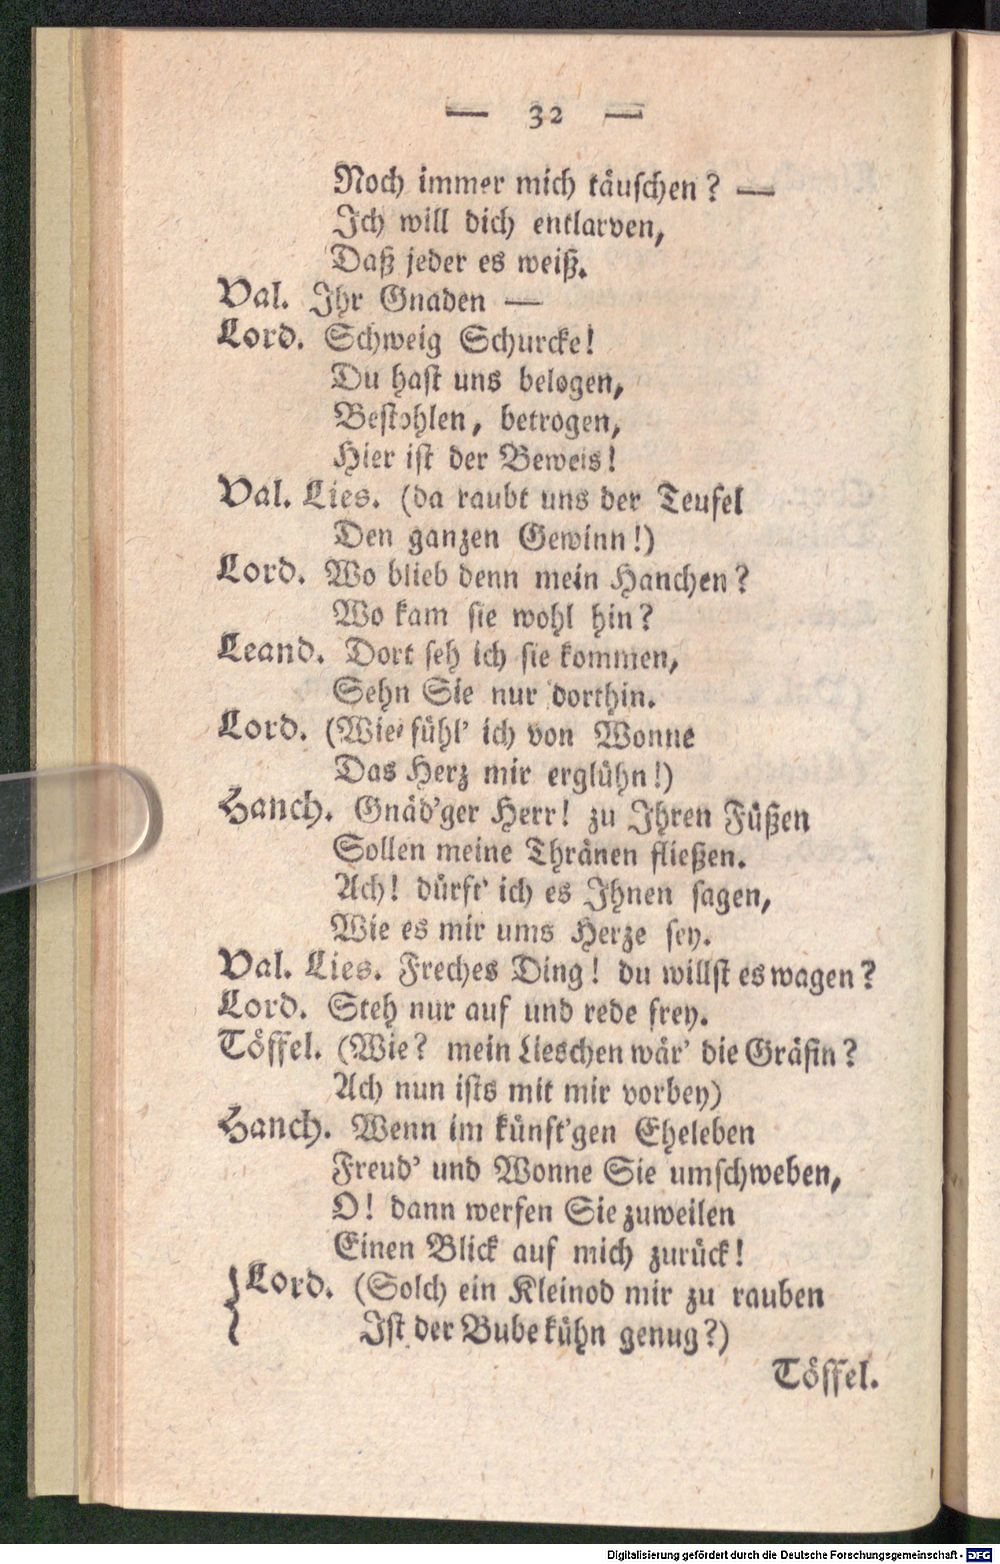 — 32 —
Noch immer mich täuschen? —
Ich will dich entlarven,
Daß jeder es weiß.
Val. Ihr Gnaden —
Lord. Schweig Schurcke!
Du hast uns belogen,
Bestohlen, betrogen,
Hier ist der Beweis!
Val. Lies. (da raubt uns der Teufel
Den ganzen Gewinn!)
Lord. Wo blieb denn mein Hanchen?
Wo kam sie wohl hin?
Leand. Dort seh ich sie kommen,
Sehn Sie nur dorthin.
Lord. (Wie fühl' ich von Wonne
Das Herz mir erglühn!)
Hanch. Gnäd'ger Herr! zu Ihren Füßen
Sollen meine Thränen fließen.
Ach! dürft' ich es Ihnen sagen,
Wie es mir ums Herze sey.
Val. Lies. Freches Ding! du willst es wagen?
Lord. Steh nur auf und rede frey.
Töffel. (Wie? mein Lieschen wär' die Gräfin?
Ach nun ists mit mir vorbey)
Hanch. Wenn im künft'gen Eheleben
Freud' und Wonne Sie umschweben,
O! dann werfen Sie zuweilen
Einen Blick auf mich zurück!
Lord. (Solch ein Kleinod mir zu rauben
Ist der Bube kühn genug?)
Töffel.
Digitalisierung gefördert durch die Deutsche Forschungsgemeinschaft - DFG